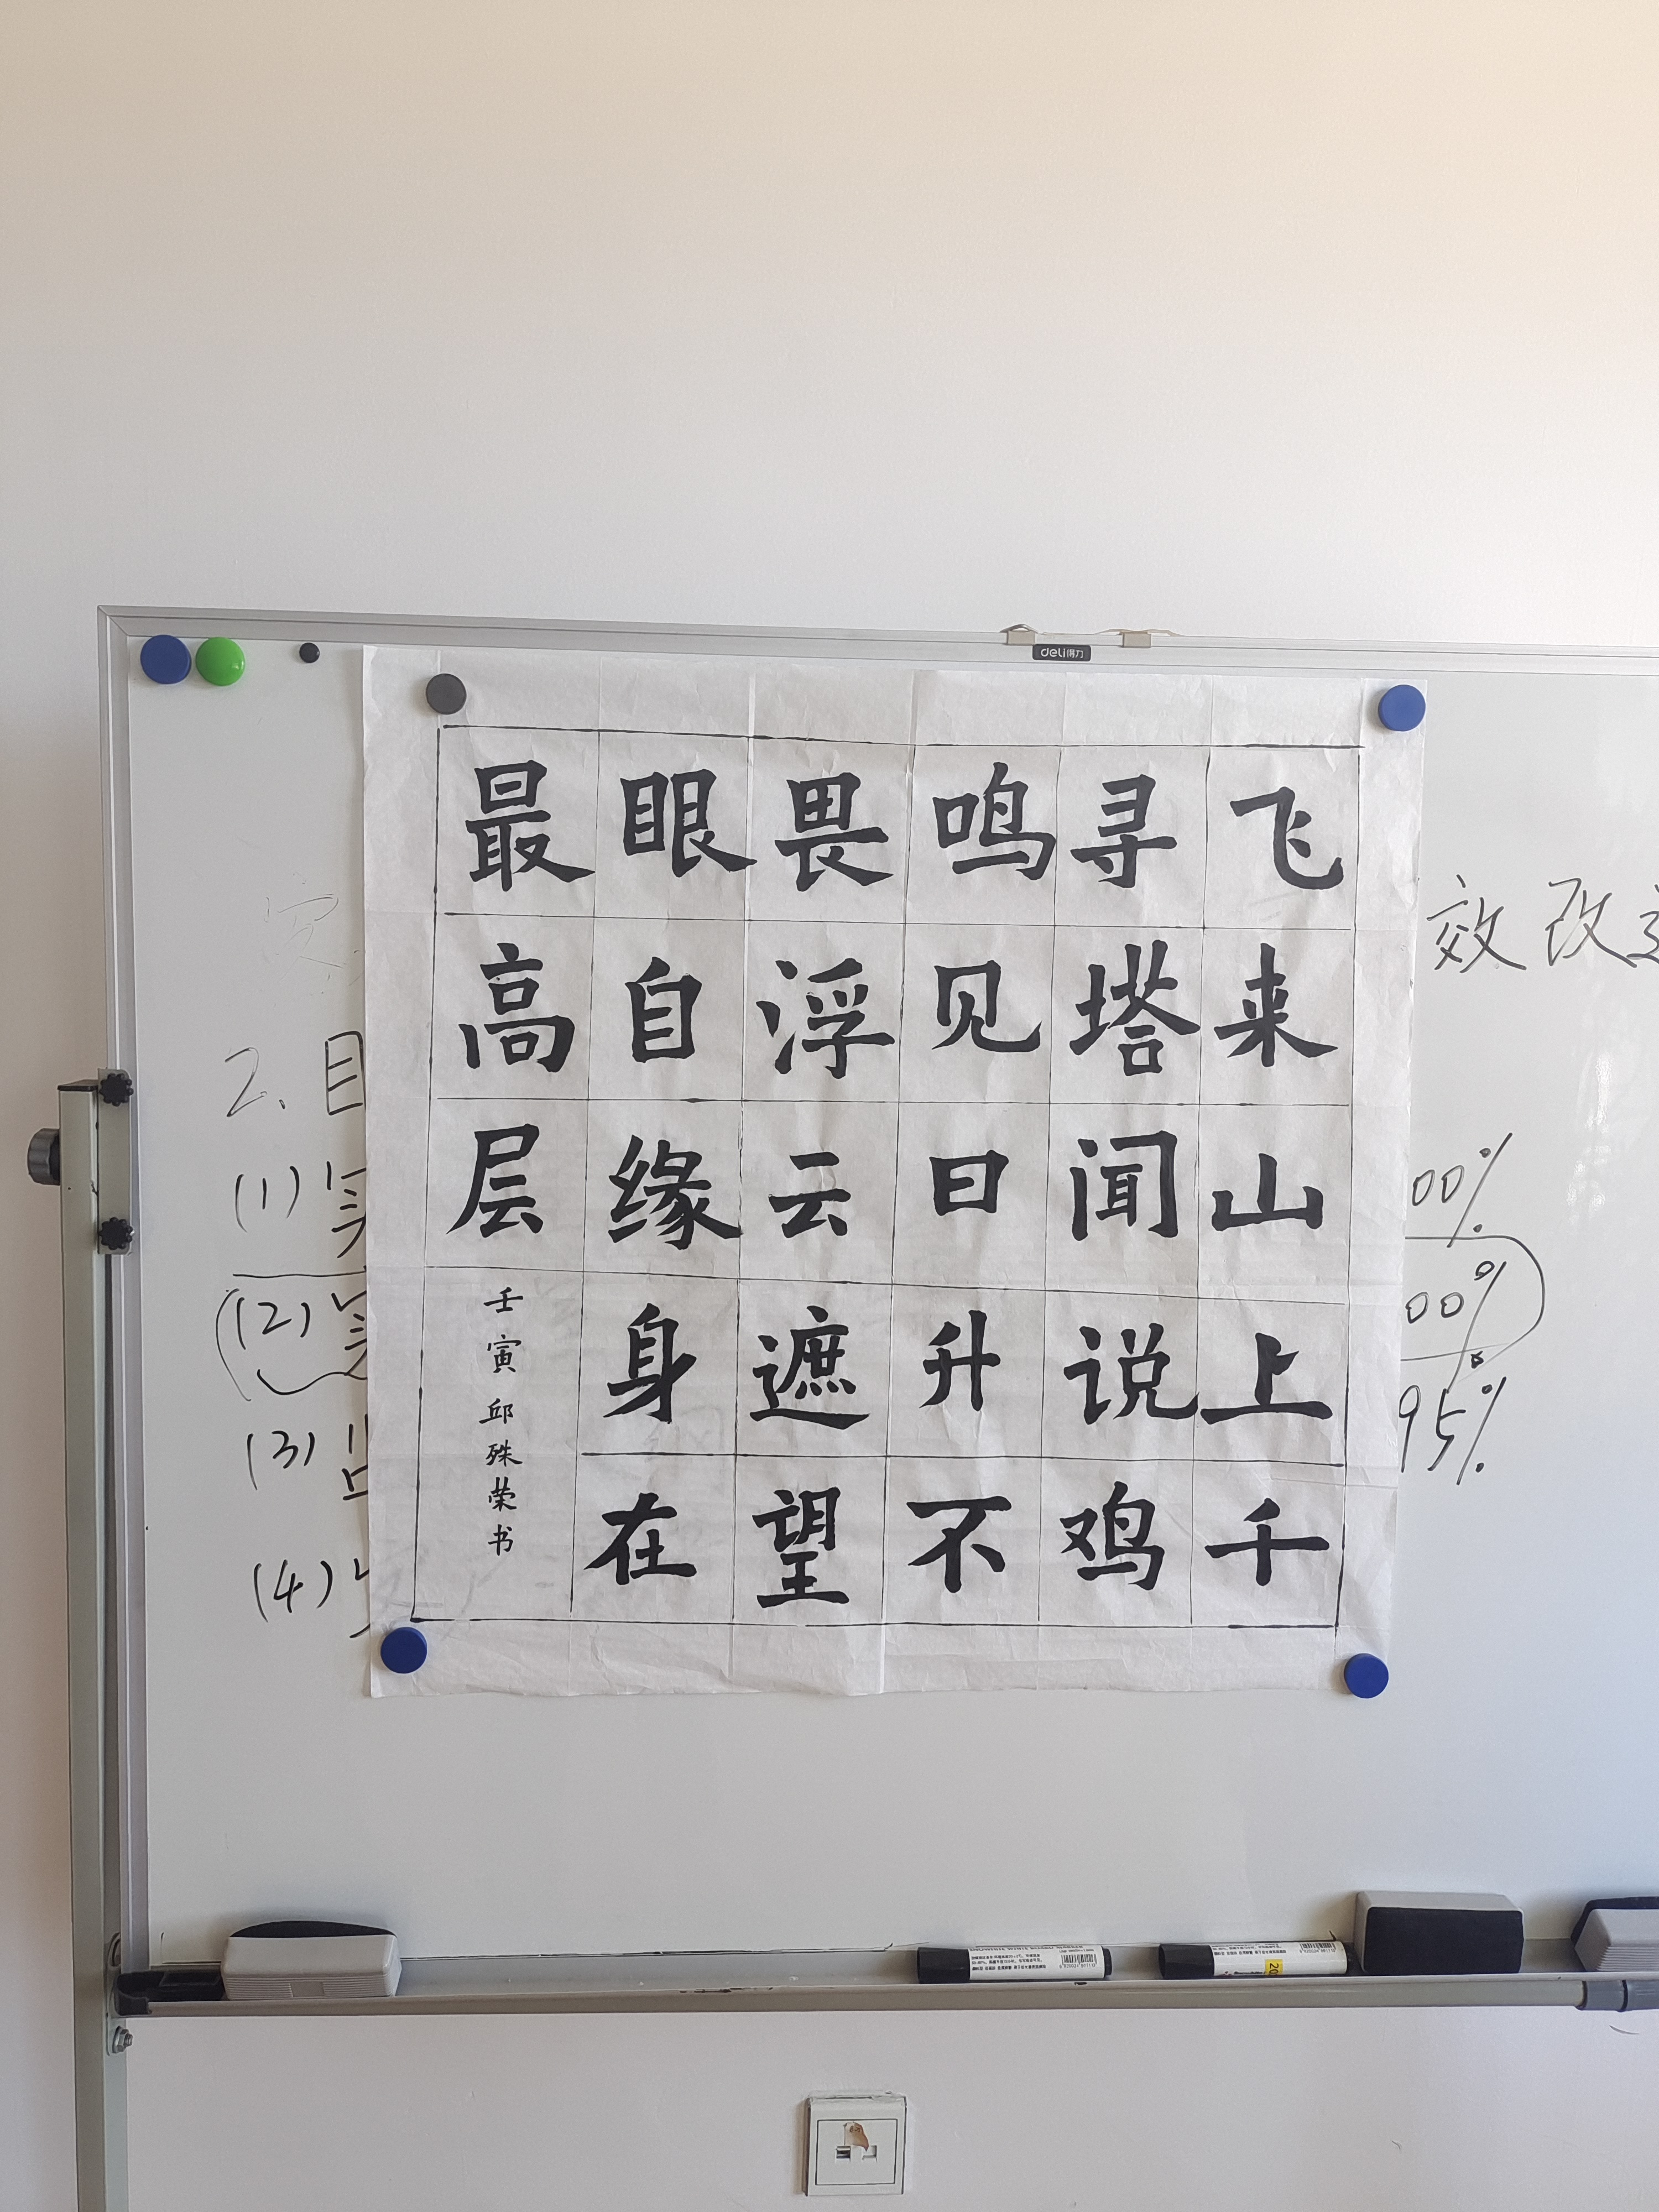 飞来山上千
寻塔闻说鸡
鸣见日升不
畏浮云遮望
眼自缘身在
最高层
壬寅邱殊荣书
deli得力
效改
2. 目
(1) 实
(2) 实
(3)
(4)
00%
00%
95%